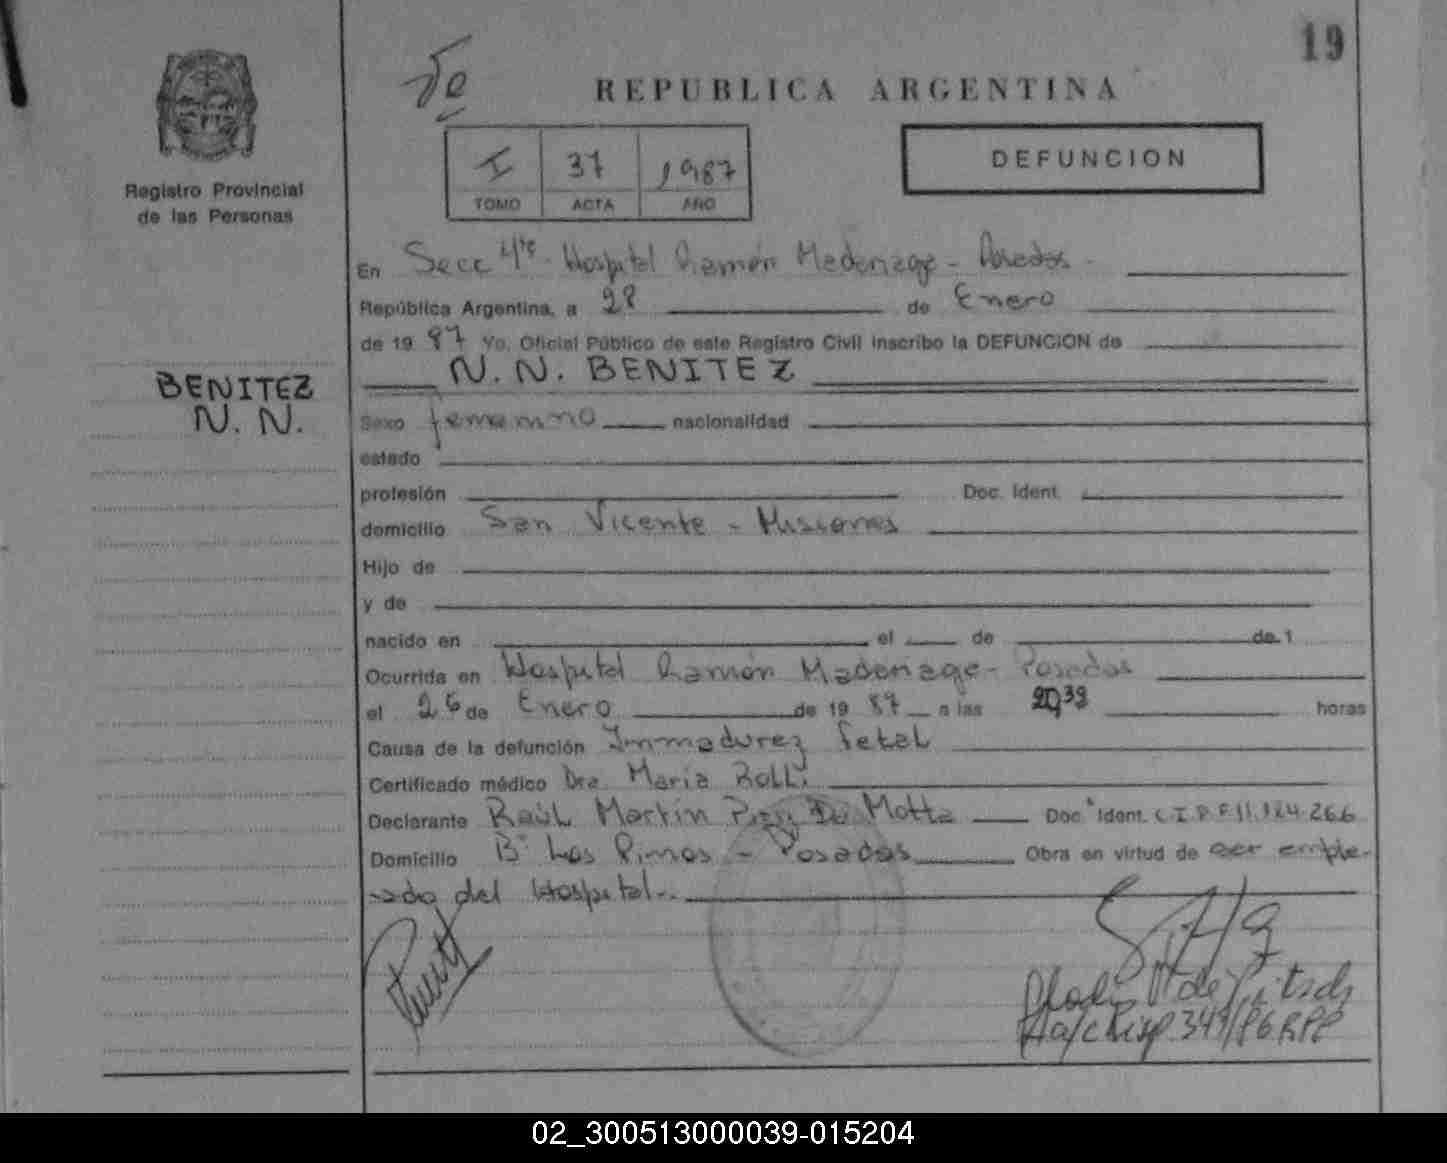 19
REPUBLICA ARGENTINA
I 37 1987
TOMO ACTA AÑO
DEFUNCION
Registro Provincial
de las Personas
BENITEZ
N. N.
En Secc 4ta. Hospital Ramón Madariaga - Posadas -
República Argentina, a 28 de Enero
de 19 87 Yo, Oficial Público de este Registro Civil inscribo la DEFUNCION de
N. N. BENITEZ
Sexo femenino nacionalidad
estado
profesión Doc. Ident.
domicilio San Vicente - Misiones
Hijo de
y de
nacido en el de de 1
Ocurrida en Hospital Ramón Madariaga - Posadas
el 26 de Enero de 19 87 a las horas
Causa de la defunción Inmadurez fetal
Certificado médico Dra. María Rolli
Declarante Raúl Martín De Motta Doc. Ident. C.I.P.F. 11.124.266
Domicilio B° Los Pinos - Posadas Obra en virtud de ser emple-
ado del Hospital.
02_300513000039-015204